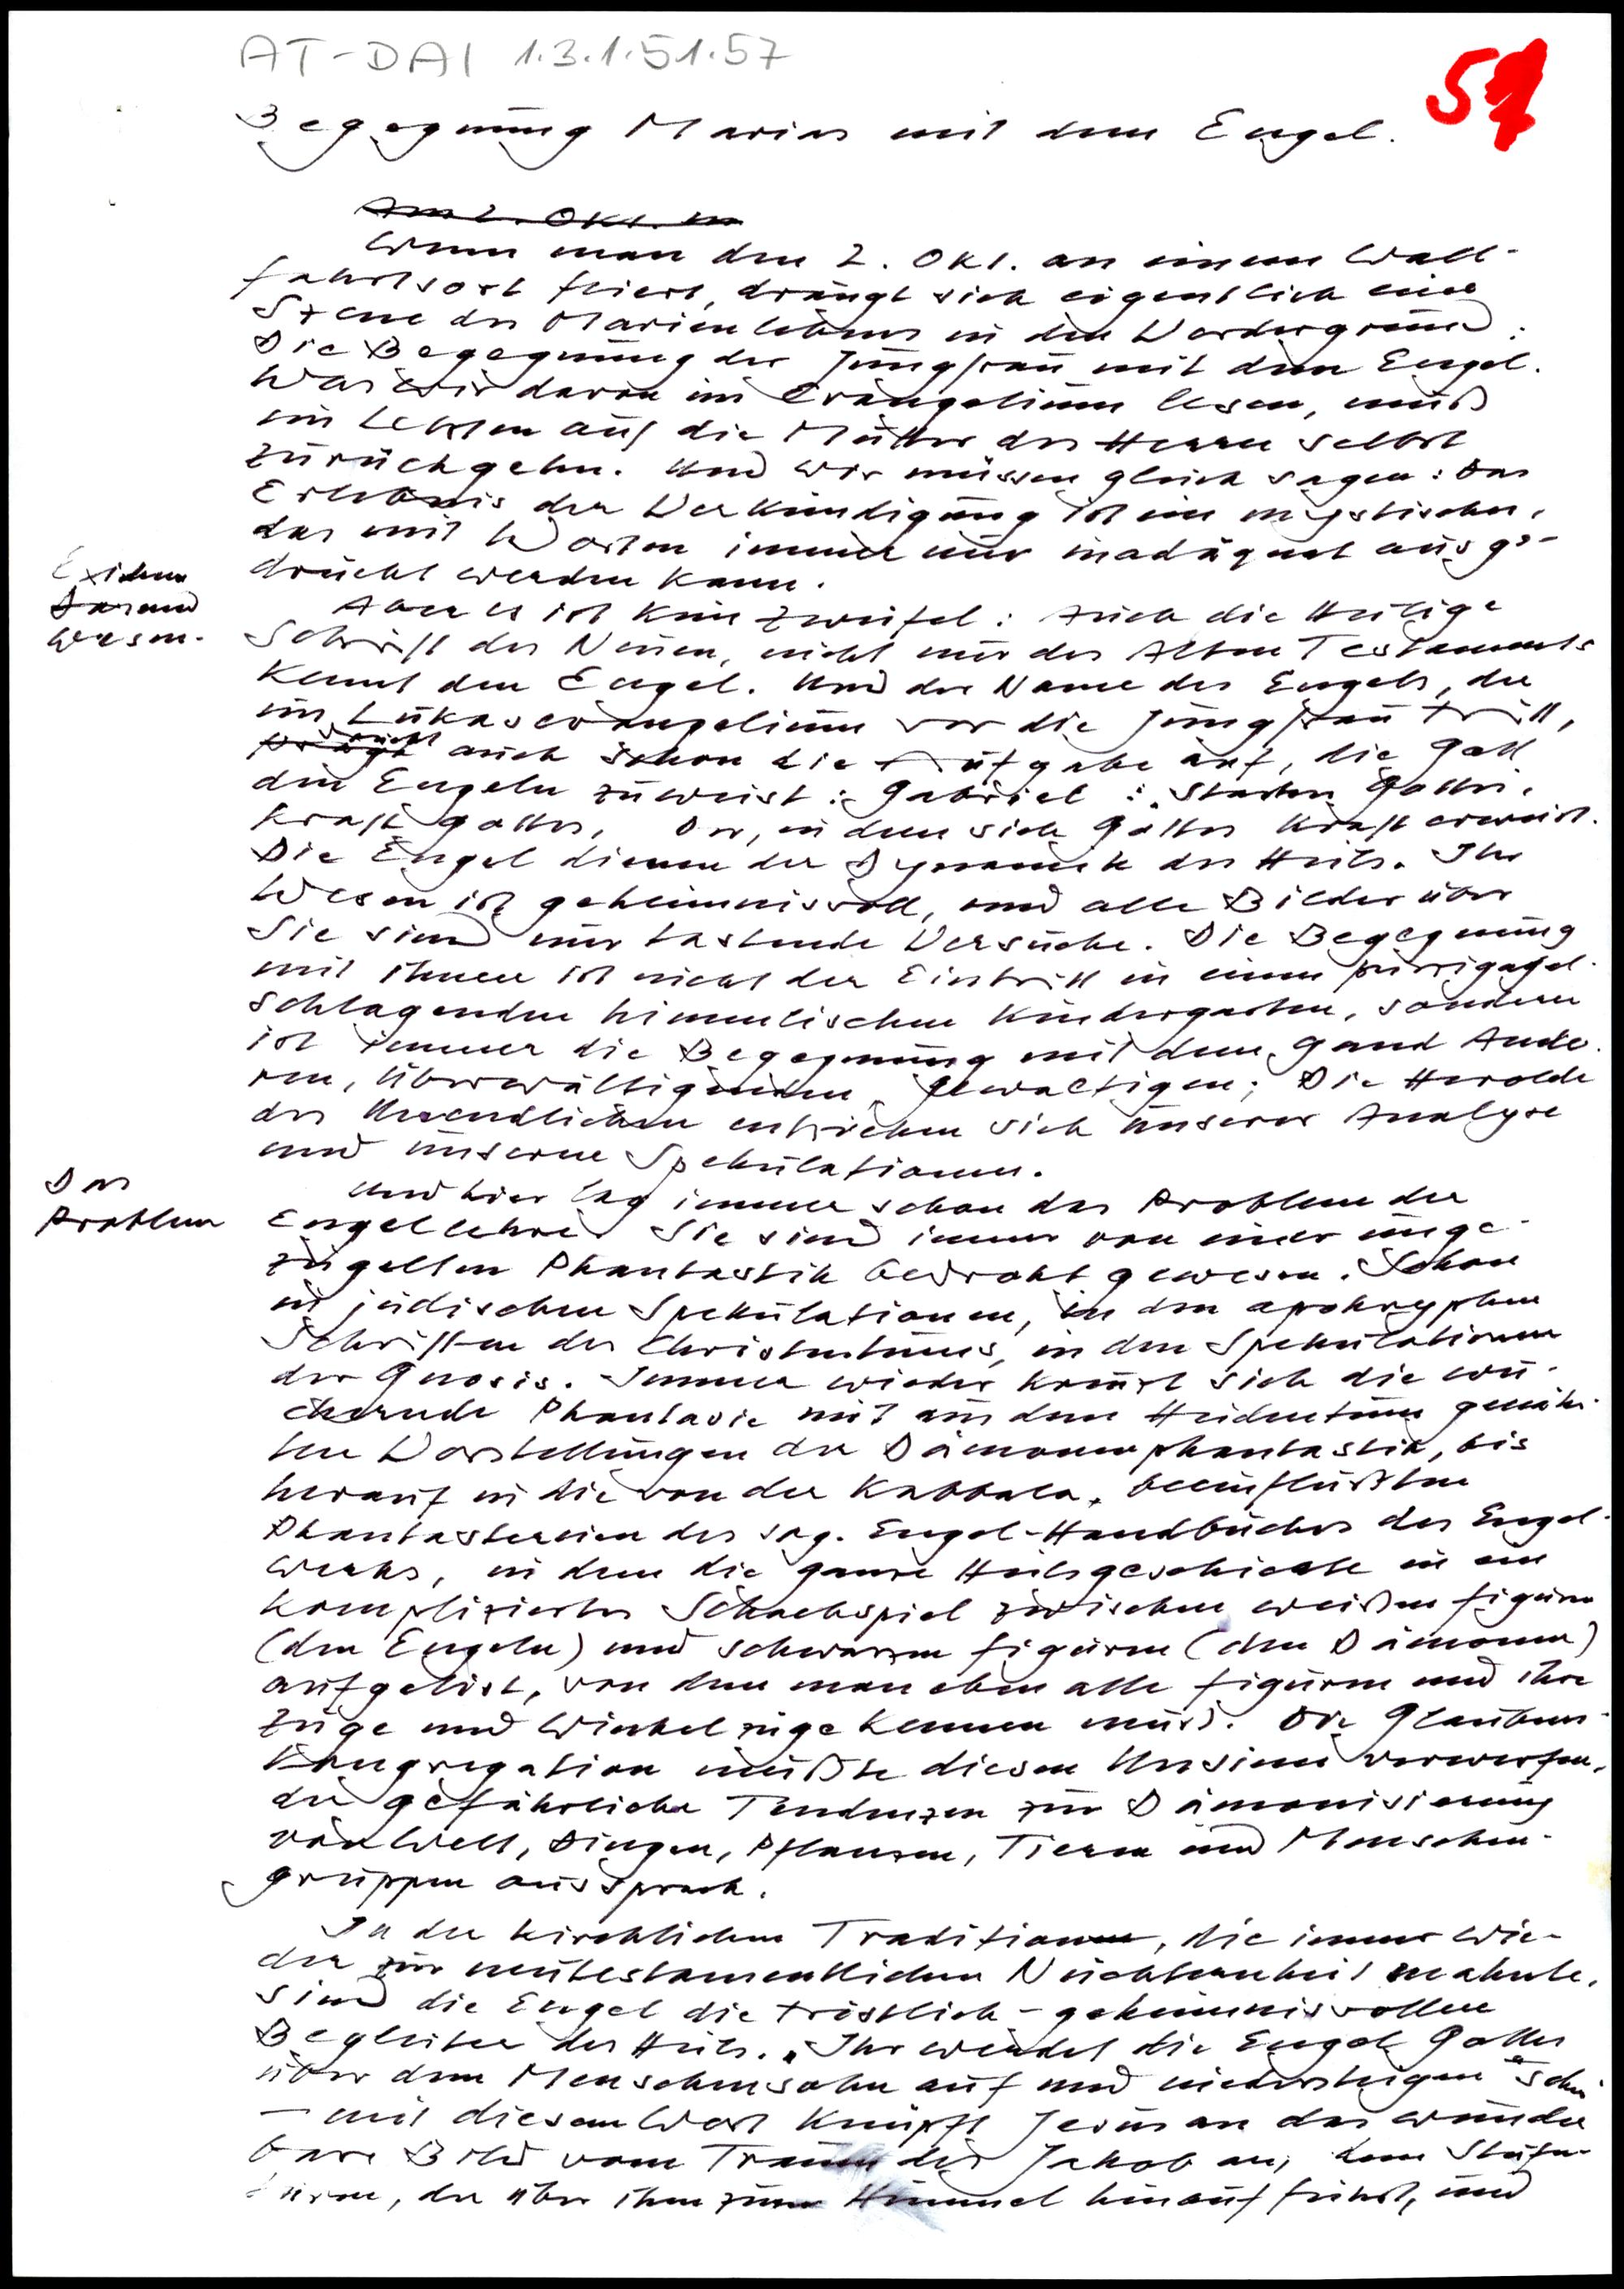 AT-DAI 1.3.1.51.57
57
Begegnung Marias mit dem Engel.
Am 2. Okt. an
Wenn man den 2. Okt. an einem Wall-
fahrtsort feiert, drängt sich eigentlich eine
Szene des Marienlebens in den Vordergrund:
Die Begegnung der Jungfrau mit dem Engel.
Was wir davon im Evangelium lesen, muß
im Letzten auf die Mutter des Herrn selbst
zurückgehn. Und wir müssen gleich sagen: Das
Erlebnis der Verkündigung ist ein mystisches,
das mit Worten immer nur inadäquat ausge-
drückt werden kann.
Existenz
und
Wesen.
Aber es ist kein Zweifel: Auch die Heilige
Schrift des Neuen, nicht nur des Alten Testaments
kennt den Engel. Und der Name des Engels, der
im Lukasevangelium vor die Jungfrau tritt,
auch schon die Aufgabe auf, die Gott
den Engeln zuweist: Gabriel: "Starker Gottes,
Kraft Gottes, Der, in dem sich Gottes Kraft erweist.
Die Engel dienen der Dynamik des Heils. Ihr
Wesen ist geheimnisvoll, und alle Bilder über
Sie sind nur tastende Versuche. Die Begegnung
mit ihnen ist nicht der Eintritt in einen purzigagel-
schlagenden himmlischen Kindergarten, sondern
ist immer die Begegnung mit dem ganz Ande-
ren, Überwältigenden, Gewaltigen; Die Herolde
des Unendlichen entziehen sich unserer Analyse
und unseren Spekulationen.
Das
Problem
Und hier lag immer schon das Problem der
Engellehre. Sie sind immer von einer unge-
zügelten Phantastik bedroht gewesen. Schon
in jüdischen Spekulationen, in den apokryphen
Schriften des Christentums, in den Spekulationen
der Gnosis. Immer wieder kreuzt sich die wu-
chernde Phantasie mit aus dem Heidentum genähr-
ten Vorstellungen der Dämonenphantastik, bis
herauf in die von der Kabbala beeinflußten
Phantastereien des sog. Engel-Handbuches des Engel-
werks, in dem die ganze Heilsgeschichte in ein
kompliziertes Schachspiel zwischen weißen Figuren
(den Engeln) und schwarzen Figuren (den Dämonen)
aufgelöst, von dem man eben alle Figuren und ihre
Züge und Winkelzüge kennen muss. Die Glaubens-
kongregation mußte diesen Unsinn verwerfen,
der gefährliche Tendenzen zur Dämonisierung
von Welt, Dingen, Pflanzen, Tieren und Menschen-
gruppen aussprach.
In der kirchlichen Tradition, die immer wie-
der zur neutestamentlichen Nüchternheit mahnte,
sind die Engel die tröstlich-geheimnisvollen
Begleiter des Heils. "Ihr werdet die Engel Gottes
über dem Menschensohn auf und niedersteigen sehn"
- mit diesem Wort knüpft Jesus an das wunder
bare Bild vom Traum des Jakob an, dem Stufen-
turm, der über ihm zum Himmel hinauf führt, und